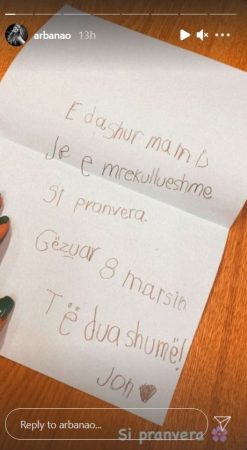 arbanao 13h
E dashur mami
Je e mrekullueshme
si pranvera.
Gëzuar 8 marsin
Të dua shumë!
Jon
Si pranvera
Reply to arbanao...